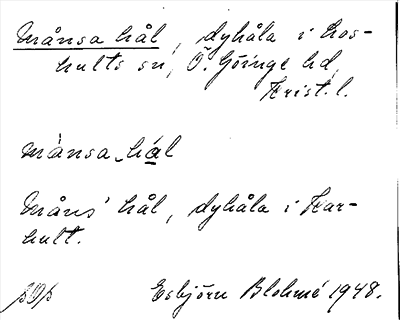 Månsa hål, dyhåla i Los-
hults sn, Ö. Göinge hd,
Krist. l.
mànsa hál
Måns' hål, dyhåla i Har-
hult.
Esbjörn Blohmé 1948.